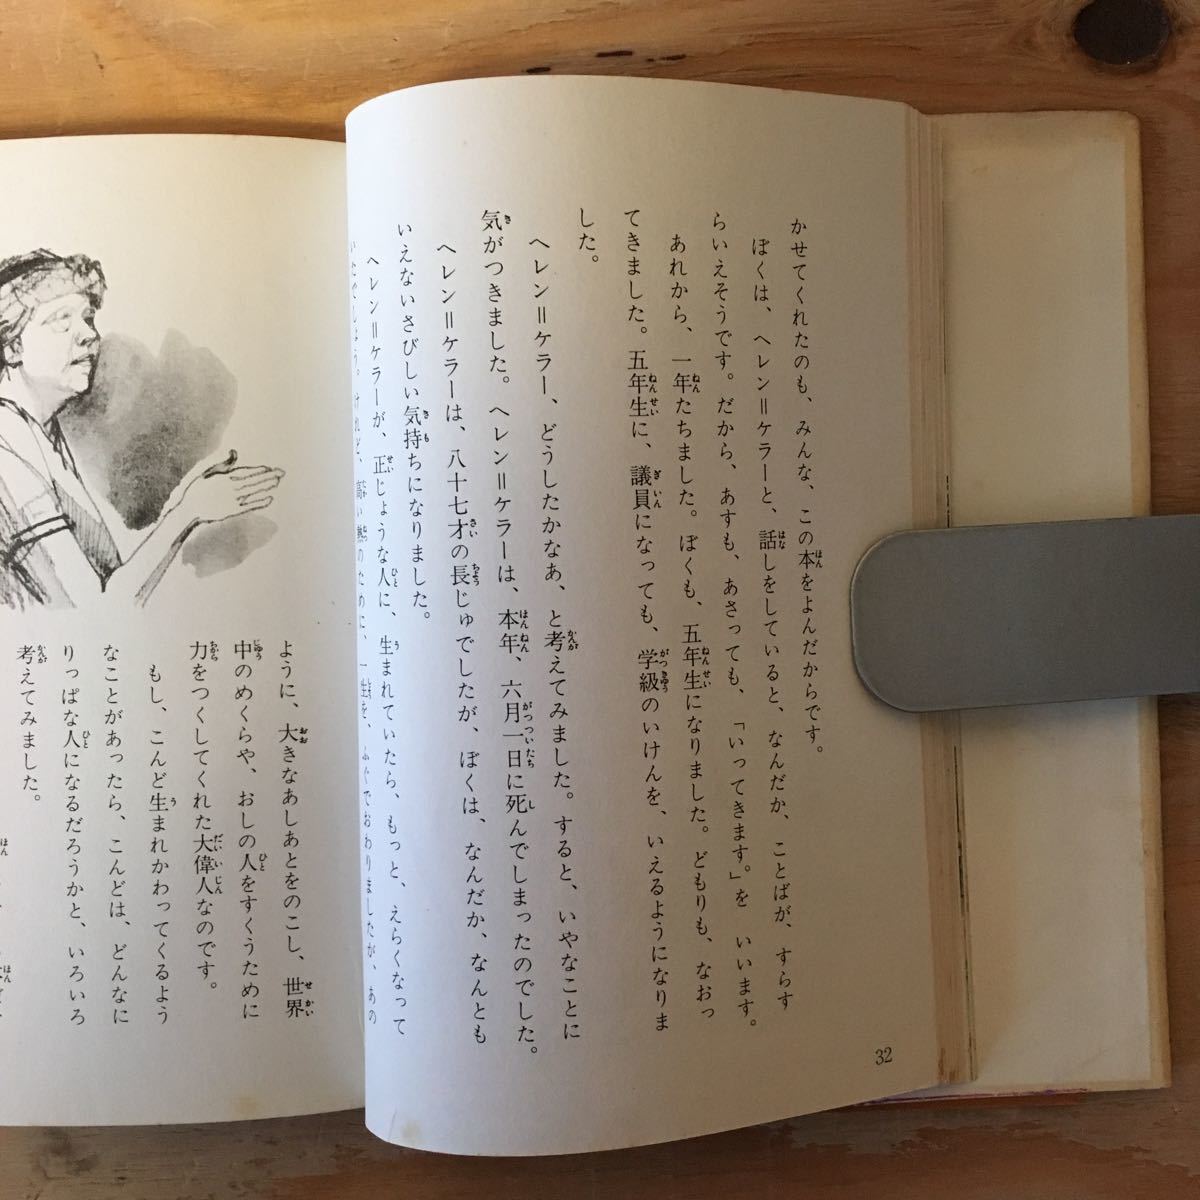 かせてくれたのも、みんな、この本をよんだからです。
ぼくは、ヘレン＝ケラーと、話しをしていると、なんだか、ことばが、すらす
らいえそうです。だから、あすも、あさっても、「いってきます。」を　いいます。
あれから、一年たちました。ぼくも、五年生になりました。どもりも、なおっ
てきました。五年生に、議員になっても、学級のいけんを、いえるようになりま
した。
ヘレン＝ケラー、どうしたかなあ、と考えてみました。すると、いやなことに
気がつきました。ヘレン＝ケラーは、本年、六月一日に死んでしまったのでした。
ヘレン＝ケラーは、八十七才の長じゅでしたが、ぼくは、なんだか、なんとも
いえないさびしい気持ちになりました。
ヘレン＝ケラーが、正じょうな人に、生まれていたら、もっと、えらくなって
いたでしょう。けれど、高い熱のために、一生を、ふぐでおわりましたが、あの
32
ように、大きなあしあとをのこし、世界
中のめくらや、おしの人をすくうために
力をつくしてくれた大偉人なのです。
もし、こんど生まれかわってくるよう
なことがあったら、こんどは、どんなに
りっぱな人になるだろうかと、いろいろ
考えてみました。